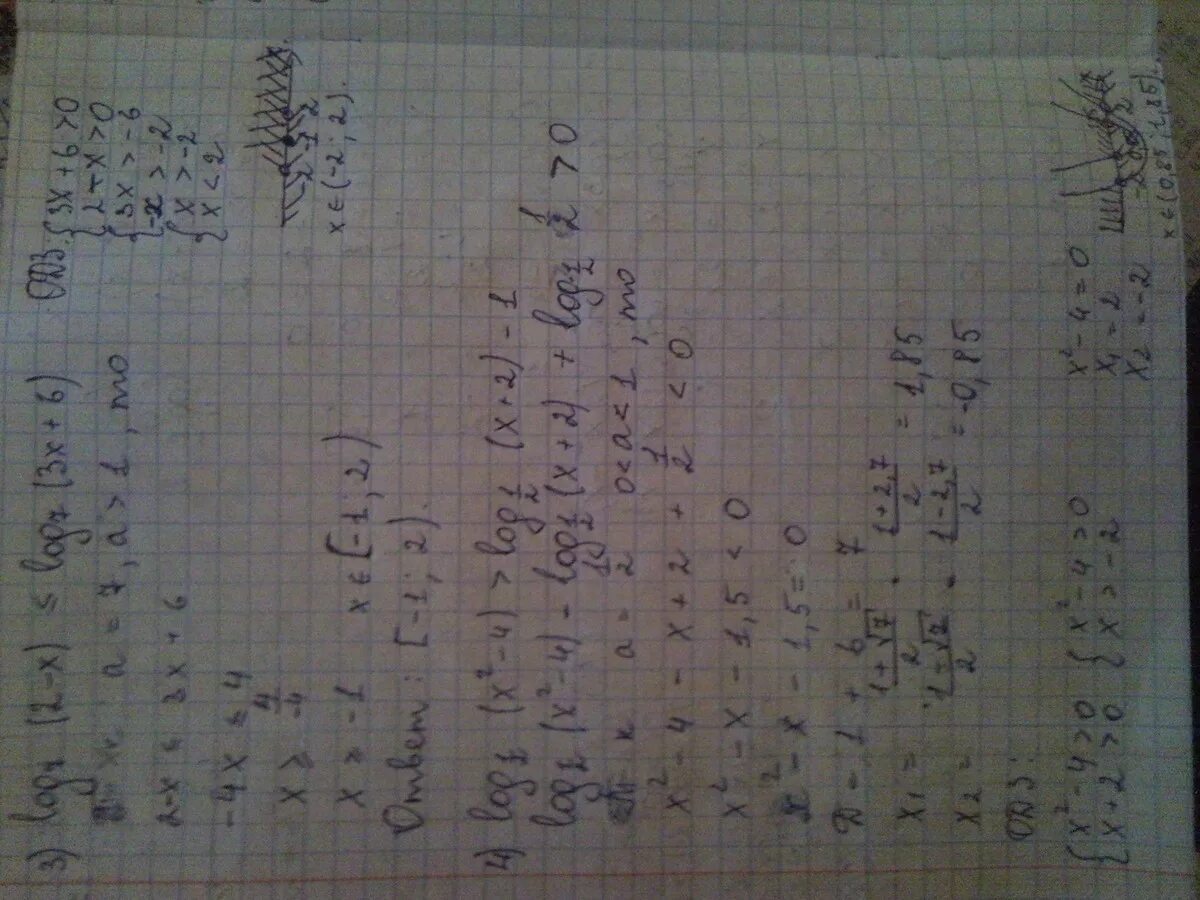 3) log₇ (2-x) ≤ log₇ (3x+6)
a = 7, a > 1, то
2-x ≤ 3x + 6
-4x ≤ 4
x ≥ 4/-4
x ≥ -1 x ∈ [-1; 2)
Ответ: [-1; 2).
ОДЗ: { 3x + 6 > 0
{ 2 - x > 0
{ 3x > -6
{ -x > -2
{ x > -2
{ x < 2
-2 -1 2 x
x ∈ (-2; 2).
4) log 1/2 (x² - 4) > log 1/2 (x+2) - 1
log 1/2 (x² - 4) - log 1/2 (x+2) + log 1/2 1/2 > 0
a = 1/2 0 < a < 1, то
x² - 4 - x + 2 + 1/2 < 0
x² - x - 1,5 < 0
x² - x - 1,5 = 0
D = 1 + 6 = 7
x₁ = (1 + √7)/2 = (1 + 2,7)/2 = 1,85
x₂ = (1 - √7)/2 = (1 - 2,7)/2 = -0,85
ОДЗ:
{ x² - 4 > 0 { x² - 4 > 0 x² - 4 = 0
{ x + 2 > 0 { x > -2 x₁ = 2
x₂ = -2
x ∈ (0,85; 1,85).